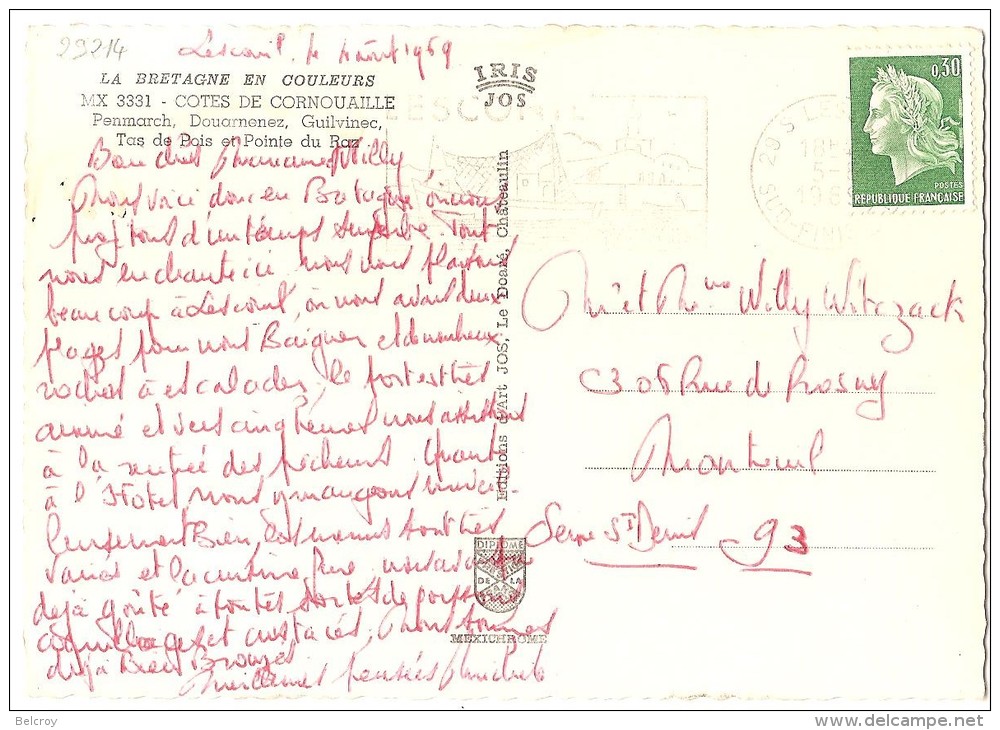 29214
Lesconil le 4 août 1969
LA BRETAGNE EN COULEURS
MX 3331 - COTES DE CORNOUAILLE
Penmarch, Douarnenez, Guilvinec,
Tas de Pois et Pointe du Raz
IRIS
JOS
LESCONIL
29 S LES
18H
5-
1969
FINIS
0,30
POSTES
REPUBLIQUE FRANÇAISE
Willy
Nous voici donc en Bretagne où nous
d'un temps superbe. Tout
nous enchante ici nous nous plaisons
beaucoup à Lesconil, on nous avons deux
plages pour nous Baigner et de nombreux
rochers à escalader, le port est très
animé et vers cinq heures nous assistons
à la rentrée des pêcheurs. Quant
à l'Hôtel nous y mangeons merveil-
leusement Bien, les menus sont très
variés et la cuisine fine nous avons
déjà goûté à toutes sortes de poissons
coquillages et crustacés, Nous sommes
déjà Bien Bronzés
Meilleures pensées
Editions d'Art JOS, Le Doaré, Châteaulin
DIPLOME
DE LA
MEXICHROME
Mr et Mme Willy Witczack
C3 05 Rue de Rosny
Montreuil
Seine St Denis 93
Belcroy
delcampe.net